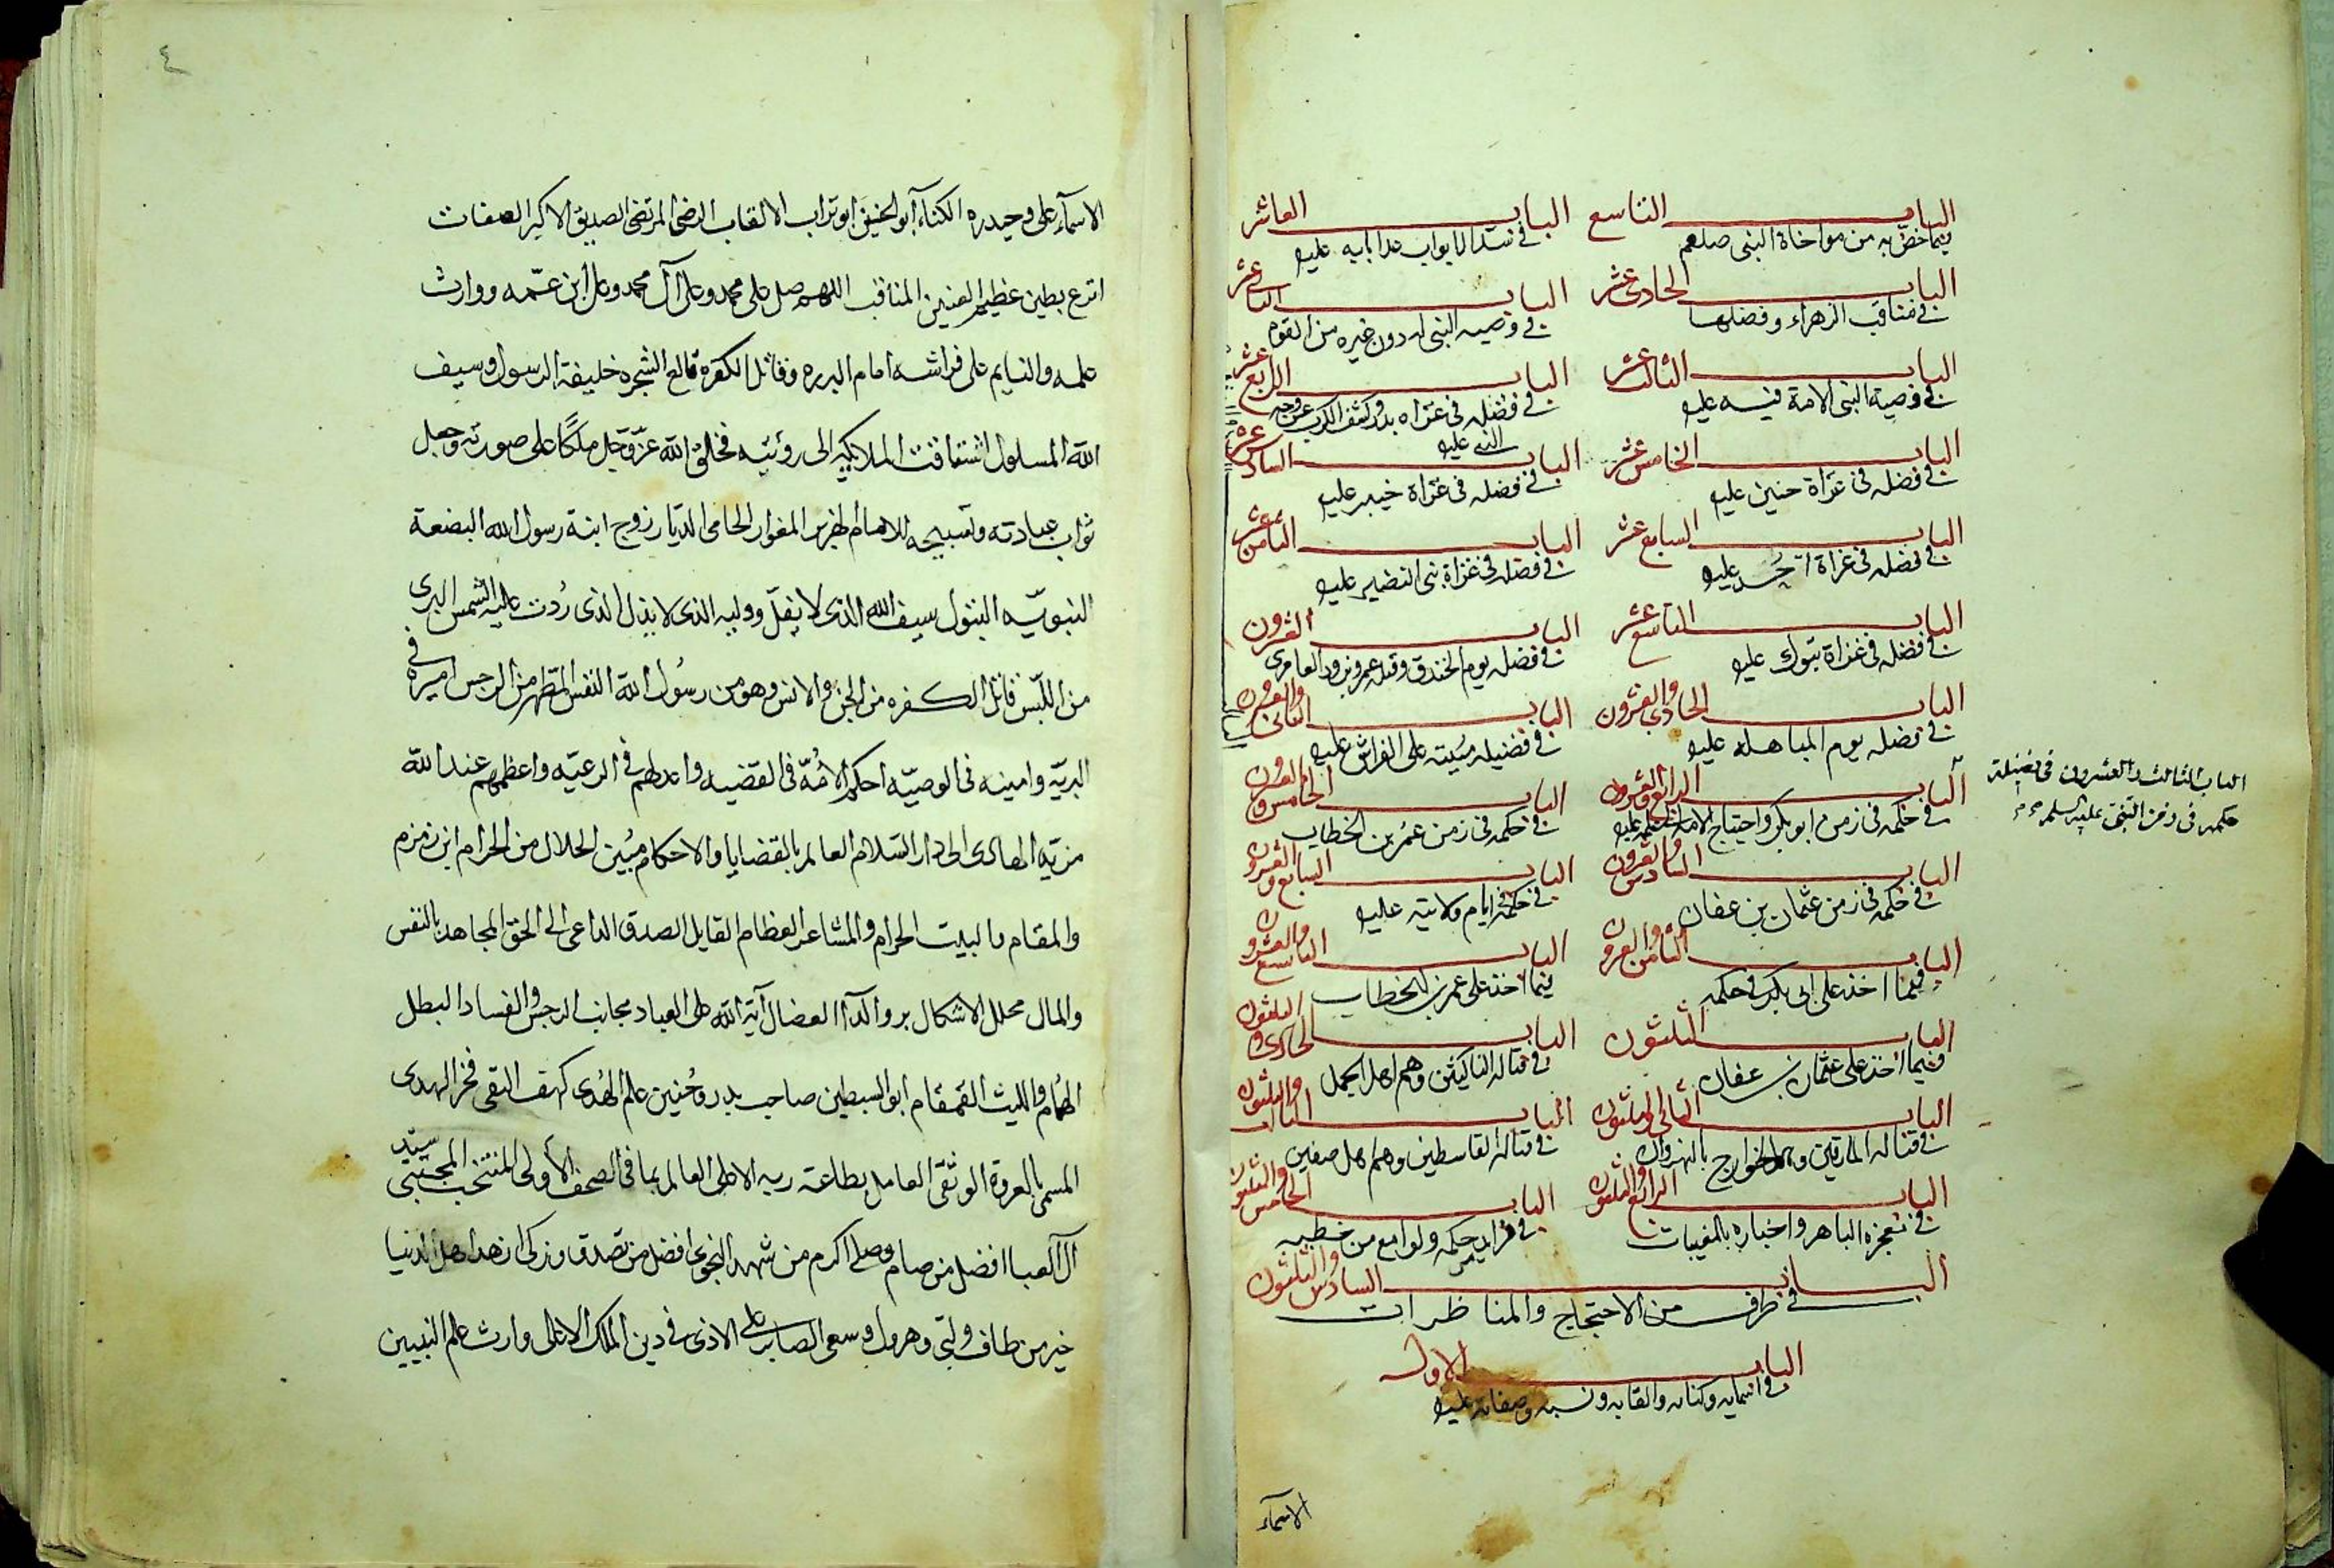 الباب التاسع
فيما خص به من مواخاة النبى صلعم
الباب العاشر
فى سد الابواب عدا بابه عليه
الباب الحادى عشر
فى مناقب الزهراء وفضلها
الباب الثانى عشر
فى وصيه النبى له دون غيره من القوم
الباب الثالث عشر
فى وصية النبى الامة فيه عليه
الباب الرابع عشر
فى فضله فى غزاه بدر وكشف الكرب عن وجه
النبى عليه
الباب الخامس عشر
فى فضله فى غزاة حنين عليه
الباب السادس عشر
فى فضله فى غزاة خيبر عليه
الباب السابع عشر
فى فضله فى غزاة احُد عليه
الباب الثامن عشر
فى فضله فى غزاة بنى النضير عليه
الباب التاسع عشر
فى فضله فى غزاة تبوك عليه
الباب العشرون
فى فضله يوم الخندق وقتله عمرو بن ود العامرى
الباب الحادى والعشرون
فى فضله يوم المباهله عليه
الباب الثانى والعشرون
فى فضيله مبيته على الفراش عليه
الباب الثالث والعشرون فى فضيلة
حكمه فى زمن النبى عليه السلم
الباب الرابع والعشرون
فى حكمه فى زمن ابو بكر واحتياج الامة عليه
الباب الخامس والعشرون
فى حكمه فى زمن عمر بن الخطاب
الباب السادس والعشرون
فى حكمه فى زمن عثمان بن عفان
الباب السابع والعشرون
فى حكمه فى ايام ولايته عليه
الباب الثامن والعشرون
فيما اخذ على ابى بكر فى حكمه
الباب التاسع والعشرون
فيما اخذ على عمر بن الخطاب
الباب الثلثون
وفيما اخذ على عثمان بن عفان
الباب الحادى والثلثون
فى قتاله الناكثين وهم اهل الجمل
الباب الثانى والثلثون
فى قتاله المارقين وهم الخوارج بالنهروان
الباب الثالث والثلثون
فى قتاله القاسطين وهم اهل صفين
الباب الرابع والثلثون
فى معجزه الباهر واخباره بالمغيبات
الباب الخامس والثلثون
فى فرايد حكمه ولوامع من خطبه
الباب السادس والثلثون
فى طرف من الاحتجاج والمناظرات
الباب الاول
فى اسمايه وكناه والقابه ونسبه وصفاته عليه
الاسمآء
٤
الاسمآء على وحيدره الكناء ابو الحسنين ابو تراب الالقاب الرضى المرتضى الصديق الاكبر الصفات
انزع بطين عظيم العينين المناقب اللهم صل على محمد وعلى آل محمد وعلى ابن عمّه ووارث
علمه والنايم على فراشه امام البرره وقاتل الكفره قالع الشجره خليفة الرسول وسيف
الله المسلول اشتاقت الملايكه الى رؤيته فخلق الله عزّ وجل ملكًا على صورته وجعل
ثواب عبادته وتسبيحه للامام المغوار الحامى الديار زوج ابنة رسول الله البضعة
النبويّه البتول سيف الله الذى لا يفلّ ووليه الذى لا يذل الذى رُدت عليه الشمس البرى
من اللّبس قاتل الكفره من الجن والانس وهو من رسُول الله النفس المطهر من الرجس اميره فى
البريّه وامينه فى الوصيّه احكم الامّه فى القضيه واعدلهم فى الرعيّه واعظمهم عند الله
مزيّه الهادى الى دار السّلام العالم بالقضايا والاحكام مبُين الحلال من الحرام ابن زمزم
والمقام والبيت الحرام والمشاعر العظام القايل الصدق الداعى الى الحق المجاهد بالنفس
والمال محلل الاشكال العضال آية الله على العباد مجانب الرجس والفساد البطل
الهُمام والليث القمقام ابو السبطين صاحب بدر وحُنين علم الهُدى كهف التقى فخر الهدى
المسمى بالعروة الوثقى العامل بطاعة ربه الاعلى العالم بما فى الصحف الأولى المنتخب المجتبى سيّد
آل العبا افضل من صام وصلى اكرم من شهد النجوى افضل من تصدق وزكى ازهد اهل الدنيا
خير من طاف ولبّى وهرول وسعى الصابر على الاذى فى دين الملك الاعلى وارث علم النبيين